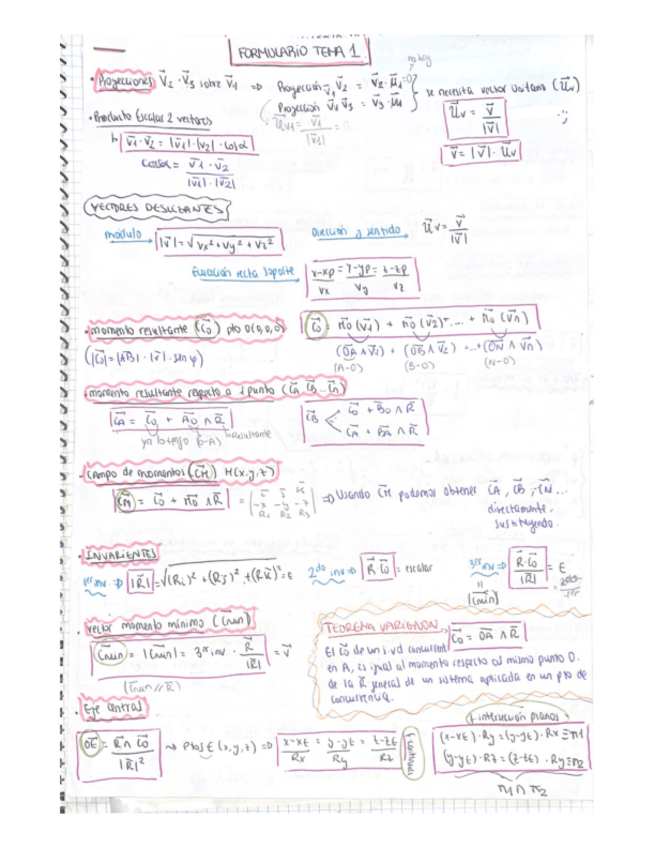 FORMULARIO TEMA 1
no hay
• Proyecciones V⃗2 · V⃗3 sobre V⃗1 ⇒ Proyección V⃗1 V⃗2 = V⃗2 · μ⃗1 = 0
Proyección V⃗1 V⃗3 = V⃗3 · μ1
se necesita vector unitario (U⃗v)
U⃗v = V⃗ / |V⃗|
V⃗ = |V⃗| · U⃗v
• Producto Escalar 2 vectores
V⃗1 · V⃗2 = |V⃗1| · |V⃗2| · cosα
cosα = V⃗1 · V⃗2 / |V⃗1| · |V⃗2|
VECTORES RESULTANTES
modulo → |V⃗| = √Vx² + Vy² + Vz²
Dirección y sentido → U⃗v = V⃗ / |V⃗|
Ecuación recta soporte → x-xp / Vx = y-yp / Vy = z-zp / Vz
• momento resultante (C⃗o) pto O(0,0,0)
C⃗o = M⃗o (V⃗1) + M⃗o (V⃗2) + ... + M⃗o (V⃗n)
(O⃗A ∧ V⃗1) + (O⃗B ∧ V⃗2) + ... + (O⃗N ∧ V⃗n)
(A-O) (B-O) (N-O)
• momento resultante respecto a 1 punto (C⃗A, C⃗B ... C⃗n)
C⃗A = C⃗o + A⃗O ∧ R⃗
ya lo tengo (O-A) Resultante
C⃗B < C⃗o + B⃗O ∧ R⃗
C⃗A + B⃗A ∧ R⃗
• Campo de momentos (C⃗M) M(x,y,z)
C⃗M = C⃗o + M⃗O ∧ R⃗ = | i j k
-x -y -z
R1 R2 R3 |
⇒ Usando C⃗M podemos obtener C⃗A, C⃗B, C⃗N ...
directamente,
sustituyendo.
• INVARIENTES
1er inv ⇒ |R⃗| = √(Ri)² + (Rj)² + (Rk)² = E
2do inv ⇒ R⃗ · C⃗o = escalar
3er inv ⇒ R⃗ · C⃗o / |R⃗| = E
|C⃗min|
• Vector momento mínimo (C⃗min)
C⃗min = |C⃗min| = 3er inv · R⃗ / |R⃗| = V⃗
(C⃗min // R⃗)
TEOREMA VARIGNON
C⃗o = O⃗A ∧ R⃗
El C⃗o de un s.v.d concurrent
en A, es igual al momento respecto al mismo punto O.
de la R⃗ general de un sistema aplicada en un pto de
concurrencia.
• Eje Central
O⃗E = R⃗ ∧ C⃗o / |R⃗|² → Ptos E (x,y,z) ⇒ x-xE / Rx = y-yE / Ry = z-zE / Rz
f. continua
f. intersección planos
(x-xE) · Ry = (y-yE) · Rx ≡ π1
(y-yE) · Rz = (z-zE) · Ry ≡ π2
π1 ∩ π2